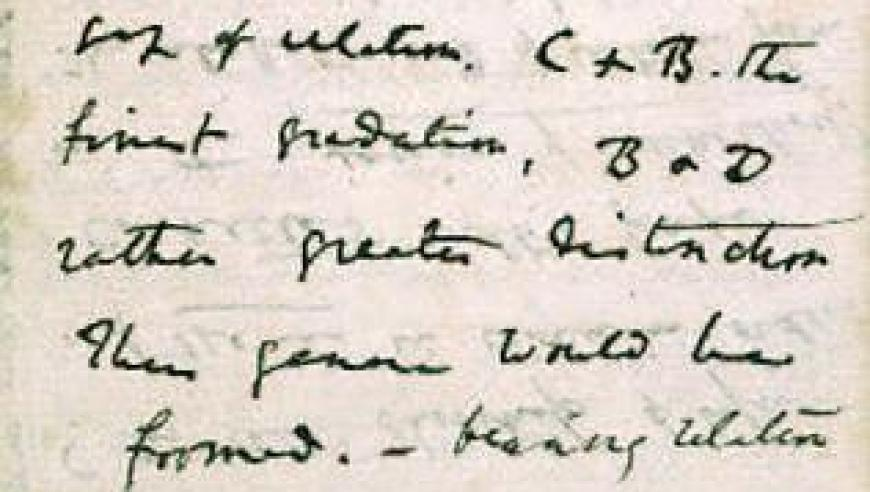 gap of relation. C + B. The
finest gradation, B & D
rather greater distinction
Thus genera would be
formed. — bearing relation